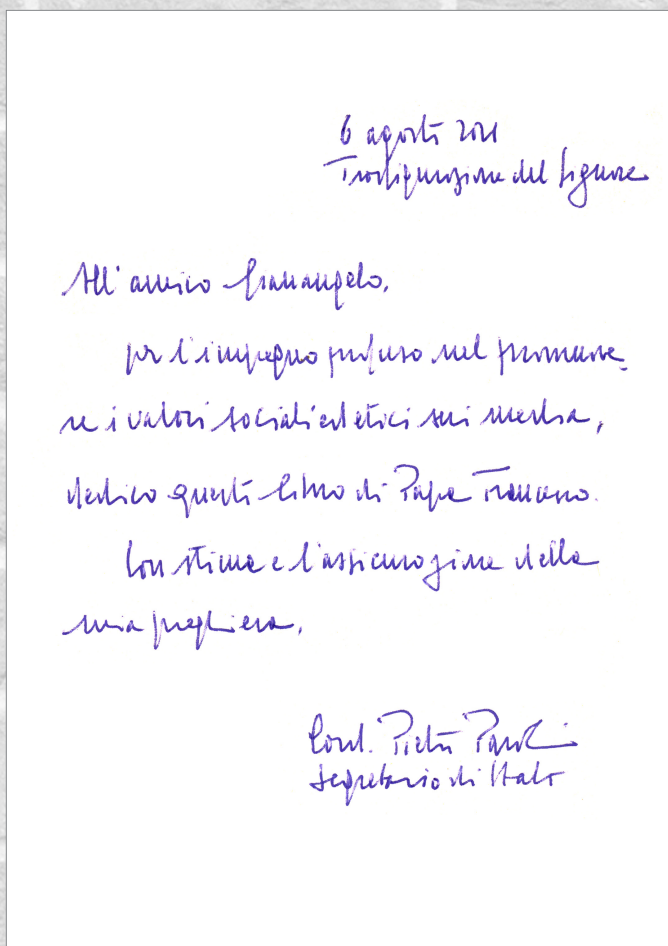 6 agosto 2021
Trasfigurazione del Signore
All'amico Gianangelo,
per l'impegno profuso nel promuove_
re i valori sociali ed etici sui media,
dedico questo libro di Papa Francesco.
Con stima e l'assicurazione della
mia preghiera,
Card. Pietro Parolin
Segretario di Stato